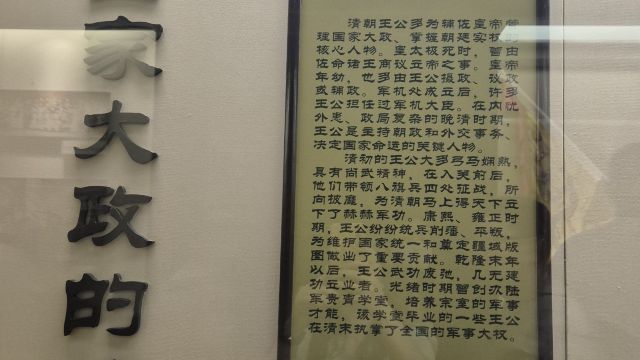 家大政的
清朝王公多为辅佐皇帝管
理国家大政、掌握朝廷实权的
核心人物。皇太极死时，曾由
佐命诸王商议立帝之事。皇帝
年幼，也多由王公摄政、议政
或辅政。军机处成立后，许多
王公担任过军机大臣。在内忧
外患、政局复杂的晚清时期，
王公是主持朝政和外交事务、
决定国家命运的关键人物。
清初的王公大多弓马娴熟，
具有尚武精神，在入关前后，
他们带领八旗兵四处征战，所
向披靡，为清朝马上得天下立
下了赫赫军功。康熙、雍正时
期，王公纷纷统兵削藩、平叛，
为维护国家统一和奠定疆域版
图做出了重要贡献。乾隆末年
以后，王公武功废弛，几无建
功立业者。光绪时期曾创办陆
军贵胄学堂，培养宗室的军事
才能，该学堂毕业的一些王公
在清末执掌了全国的军事大权。